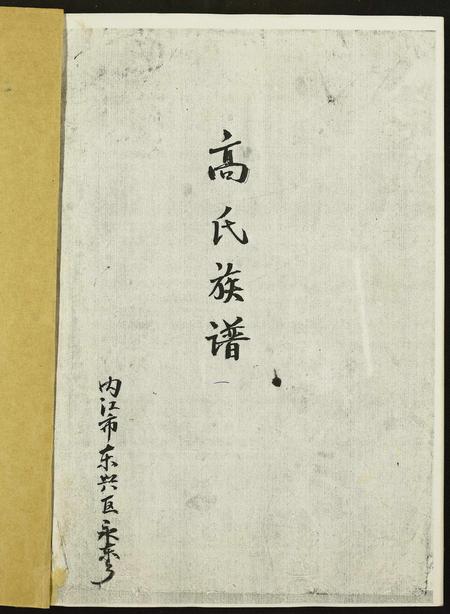 高氏族谱
一
内江市东兴区永东乡